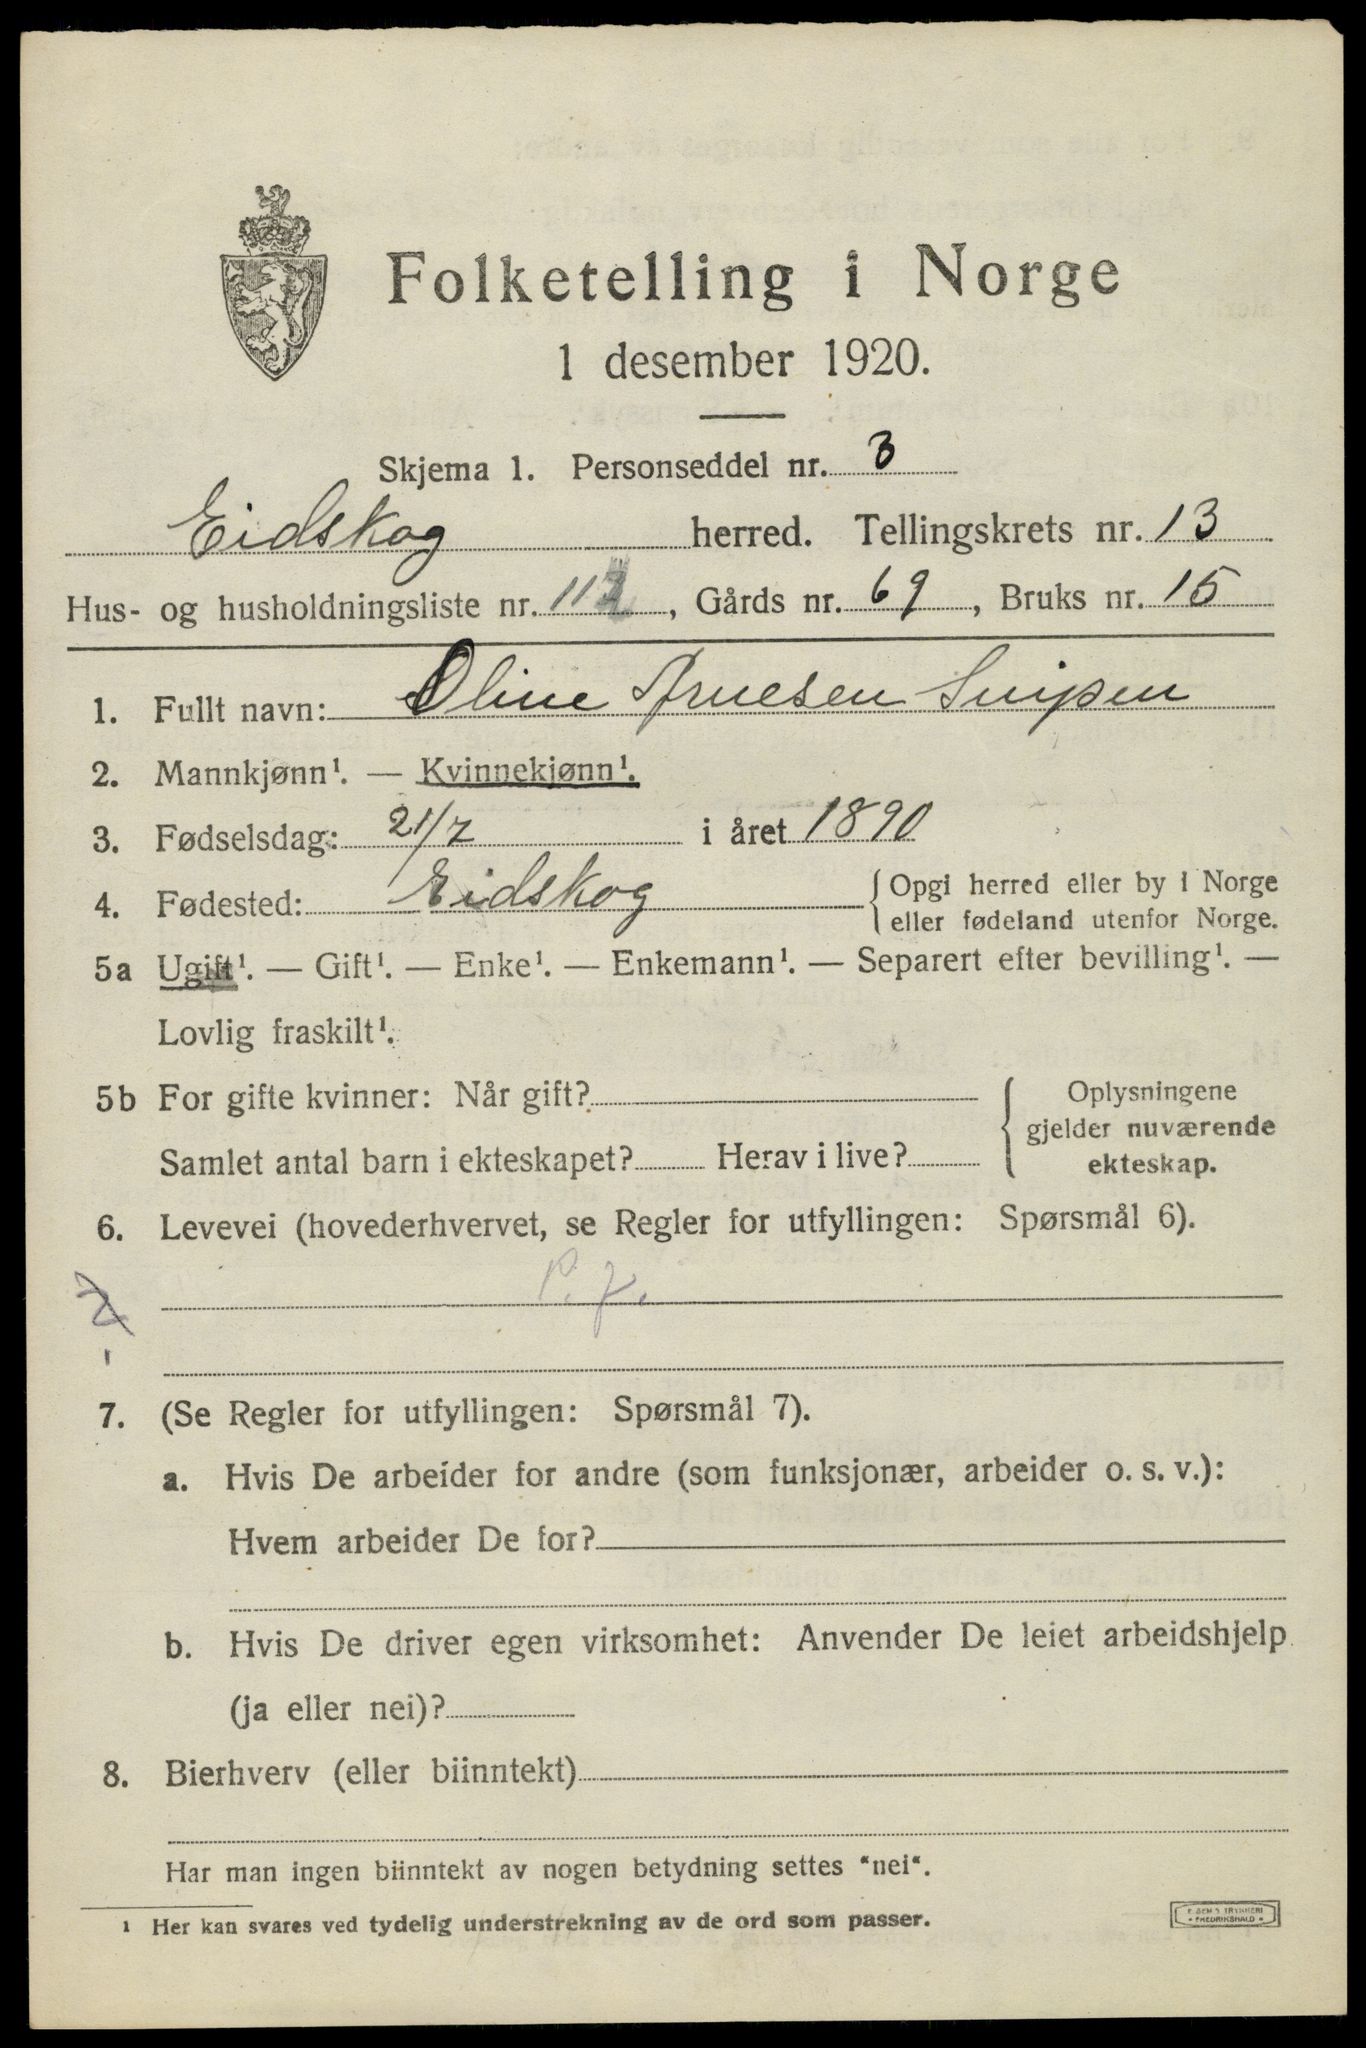 Folketelling i Norge
1 desember 1920.
Skjema 1. Personseddel nr. 3
Eidskog herred. Tellingskrets nr. 13
Hus- og husholdningsliste nr. 112, Gårds nr. 69, Bruks nr. 15
1. Fullt navn: Oline Arnesen Snipen
2. Mannkjønn¹. — Kvinnekjønn¹.
3. Fødselsdag: 21/7 i året 1890
4. Fødested: Eidskog { Opgi herred eller by i Norge
eller fødeland utenfor Norge.
5a Ugift¹. — Gift¹. — Enke¹. — Enkemann¹. — Separert efter bevilling¹. —
Lovlig fraskilt¹.
5b For gifte kvinner: Når gift? { Oplysningene
gjelder nuværende
Samlet antal barn i ekteskapet? Herav i live? ekteskap.
6. Levevei (hovederhvervet, se Regler for utfyllingen: Spørsmål 6).
7. (Se Regler for utfyllingen: Spørsmål 7).
a. Hvis De arbeider for andre (som funksjonær, arbeider o. s. v.):
Hvem arbeider De for?
b. Hvis De driver egen virksomhet: Anvender De leiet arbeidshjelp
(ja eller nei)?
8. Bierhverv (eller biinntekt)
Har man ingen biinntekt av nogen betydning settes "nei".
¹ Her kan svares ved tydelig understrekning av de ord som passer.